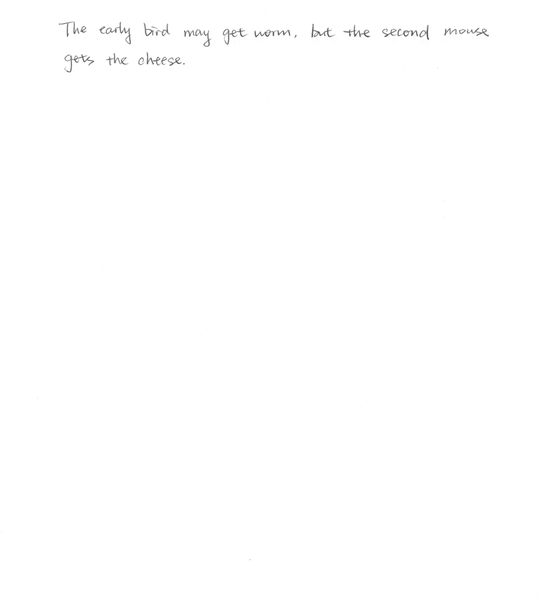 The early bird may get worm, but the second mouse
gets the cheese.